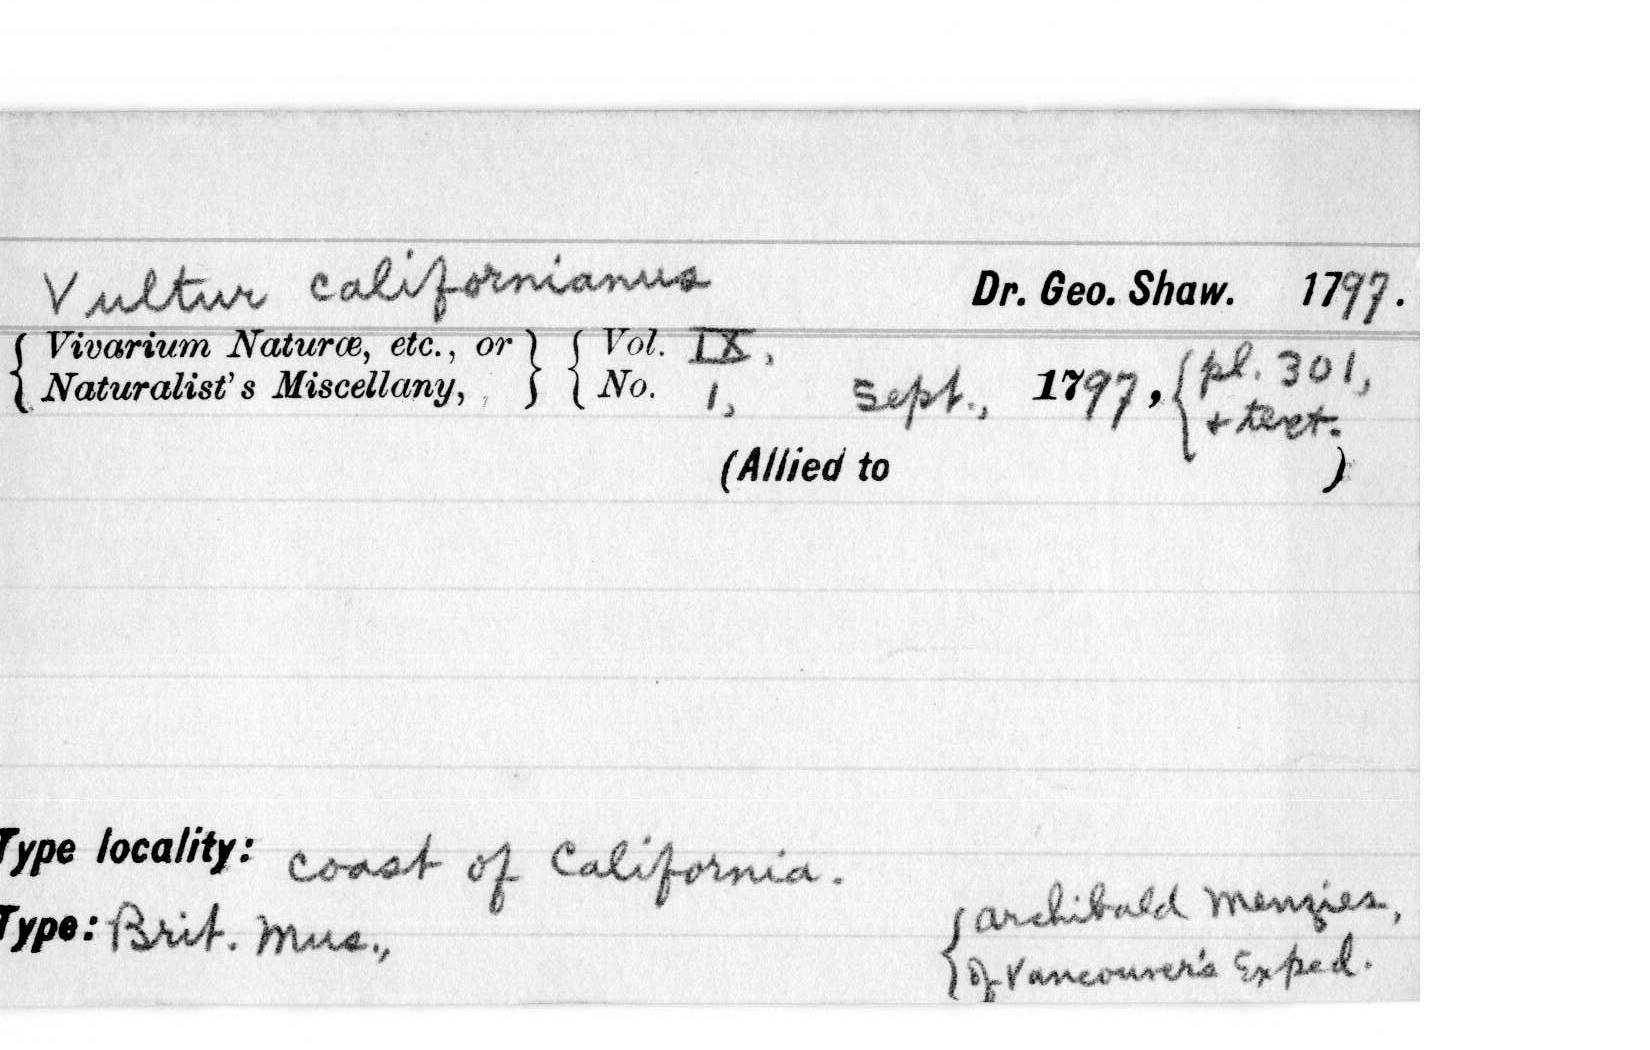 Vultur californianus Dr. Geo. Shaw. 1797.
{ Vivarium Naturæ, etc., or } { Vol. IX, { pl. 301,
{ Naturalist's Miscellany, } { No. 1, Sept., 1797, { + text.
(Allied to )
Type locality: coast of California.
{ Archibald Menzies,
Type: Brit. Mus.,
{ of Vancouver's Exped.